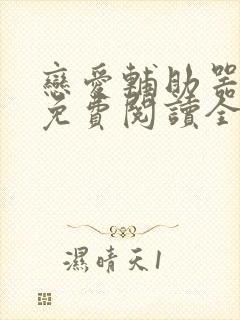 戀愛輔助器
免費閱讀全
濕晴天1